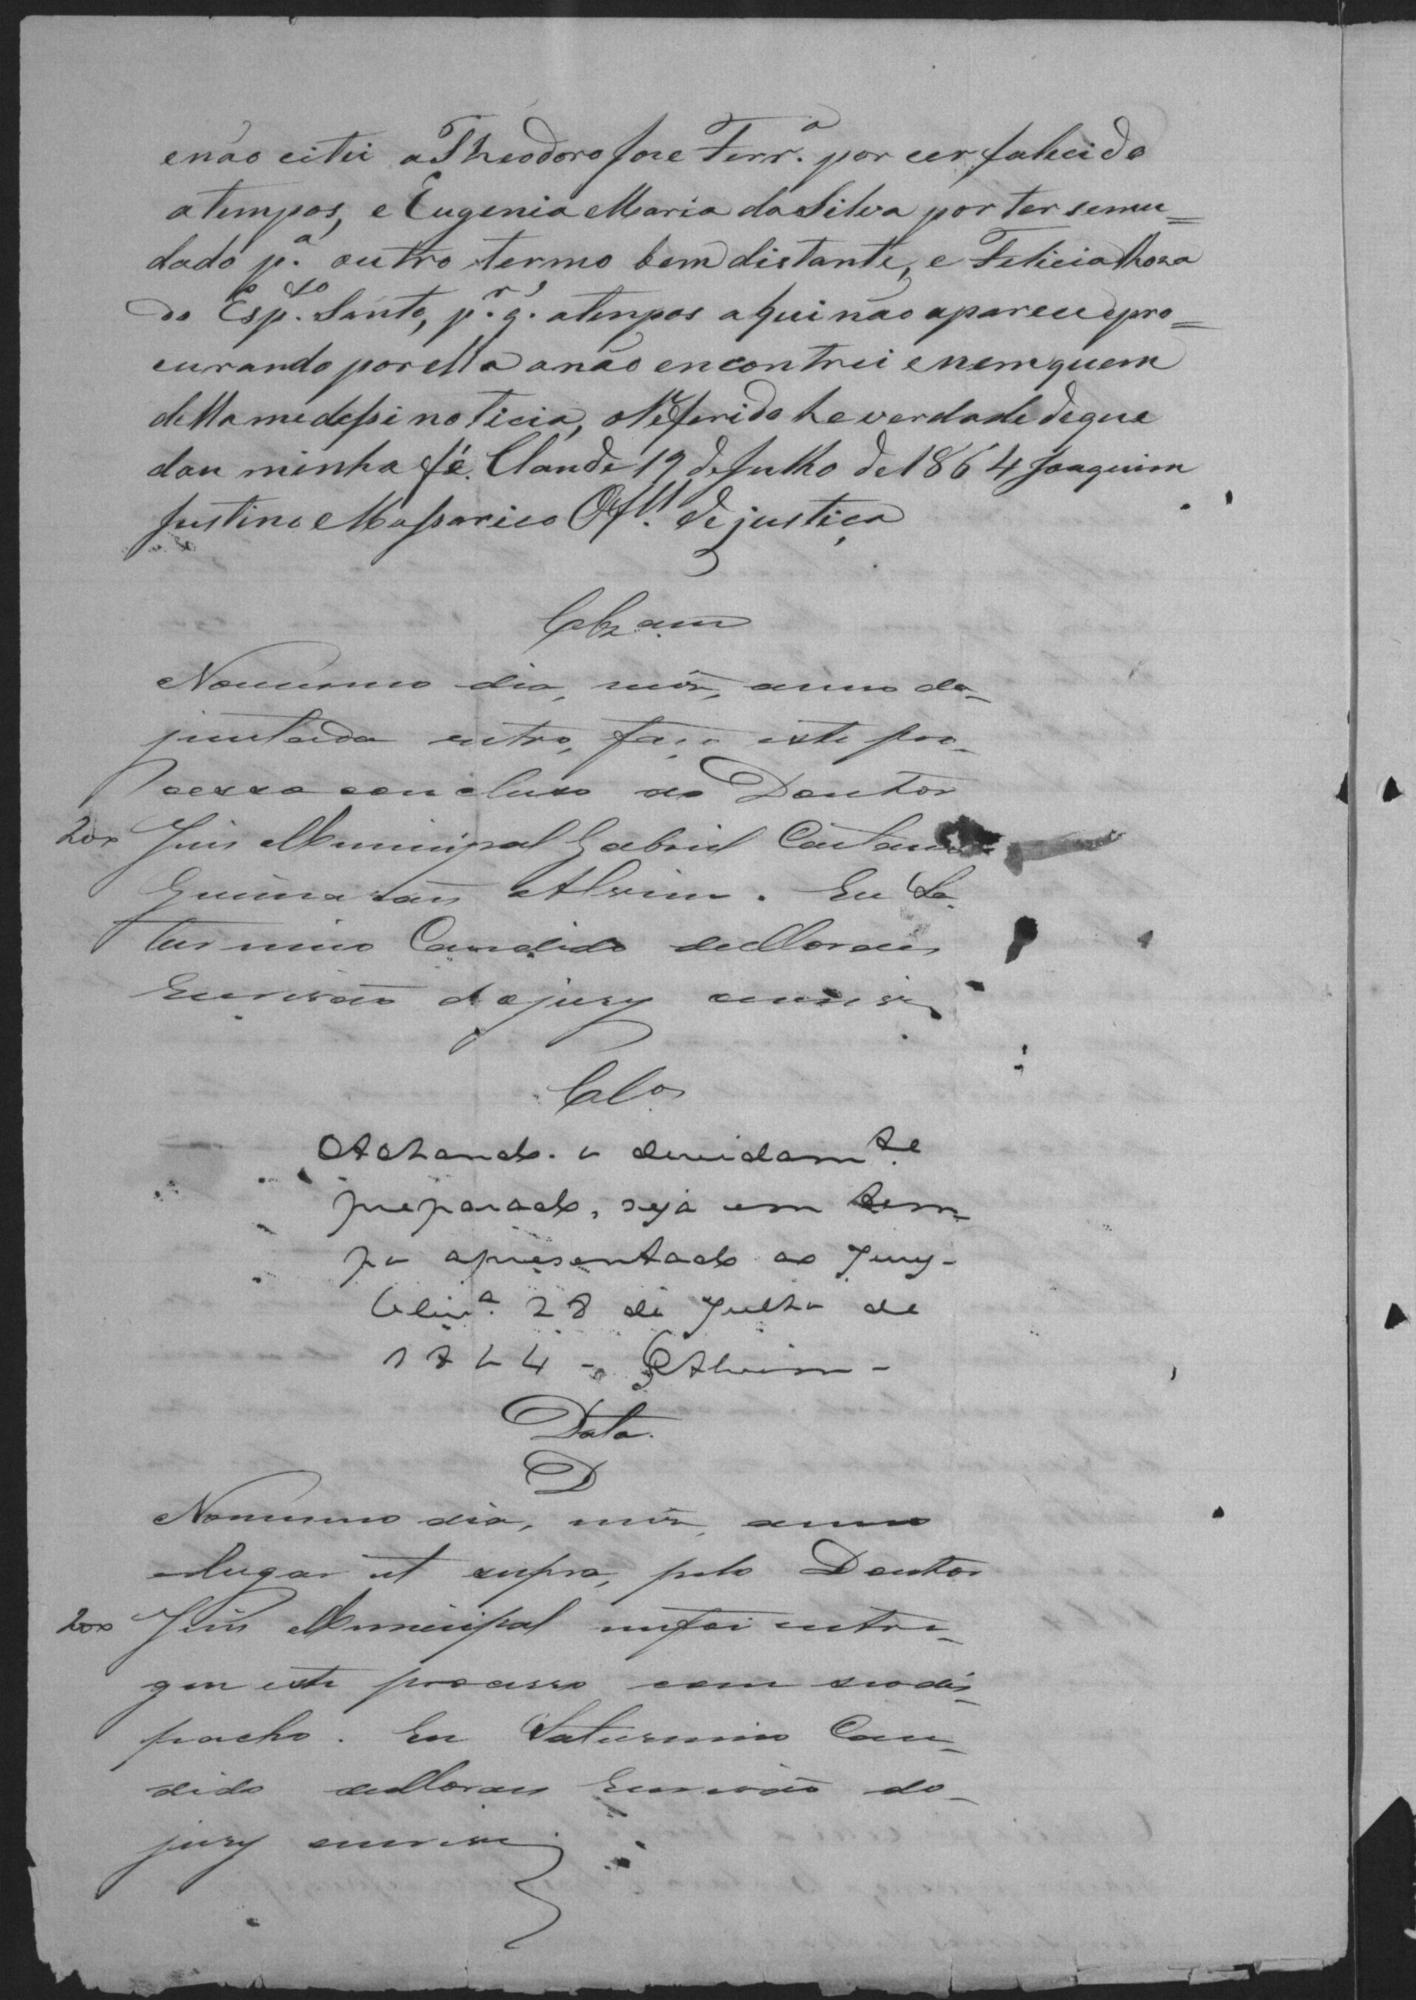 enão citei a Theodoro Jose Ferr.ª por cer falicido
atempos, e Eugenia Maria da Silva por ter semu=
dado p.ª outro termo bem distante, e Felicia Roza
do Esp.to Santo, p.r q.' atempos aqui não apareceo epro=
curando por ella anão encontrei enem quem
della me desse noticia, o Referido he verdade deque
dou minha fé. 19 de Julho de 1864 Joaquim
Justino Massarico Off.al de justiça
Clzam
Nomesmo dia, mês, anno da
juntada retro, faço este pro-
cesso concluso ao Doutor
200 Juis Municipal Gabriel Caetano
Guimarães Alvim. Eu Sa
turnino Candido de Moraes
Escrivão do jury escrevi
Clos
Achando-o devidam.te
preparado, seja em tem-
po apresentado ao Jury-
28 de Julho de
1864 - Alvim -
Data.
D
Nomesmo dia, mês, anno
elugar ut supra, pelo Doutor
200 Juis Municipal mefoi entre-
gue este processo com seo dis-
pacho. Eu Saturnino Can-
dido de Moraes Escrivão do
jury escrevi